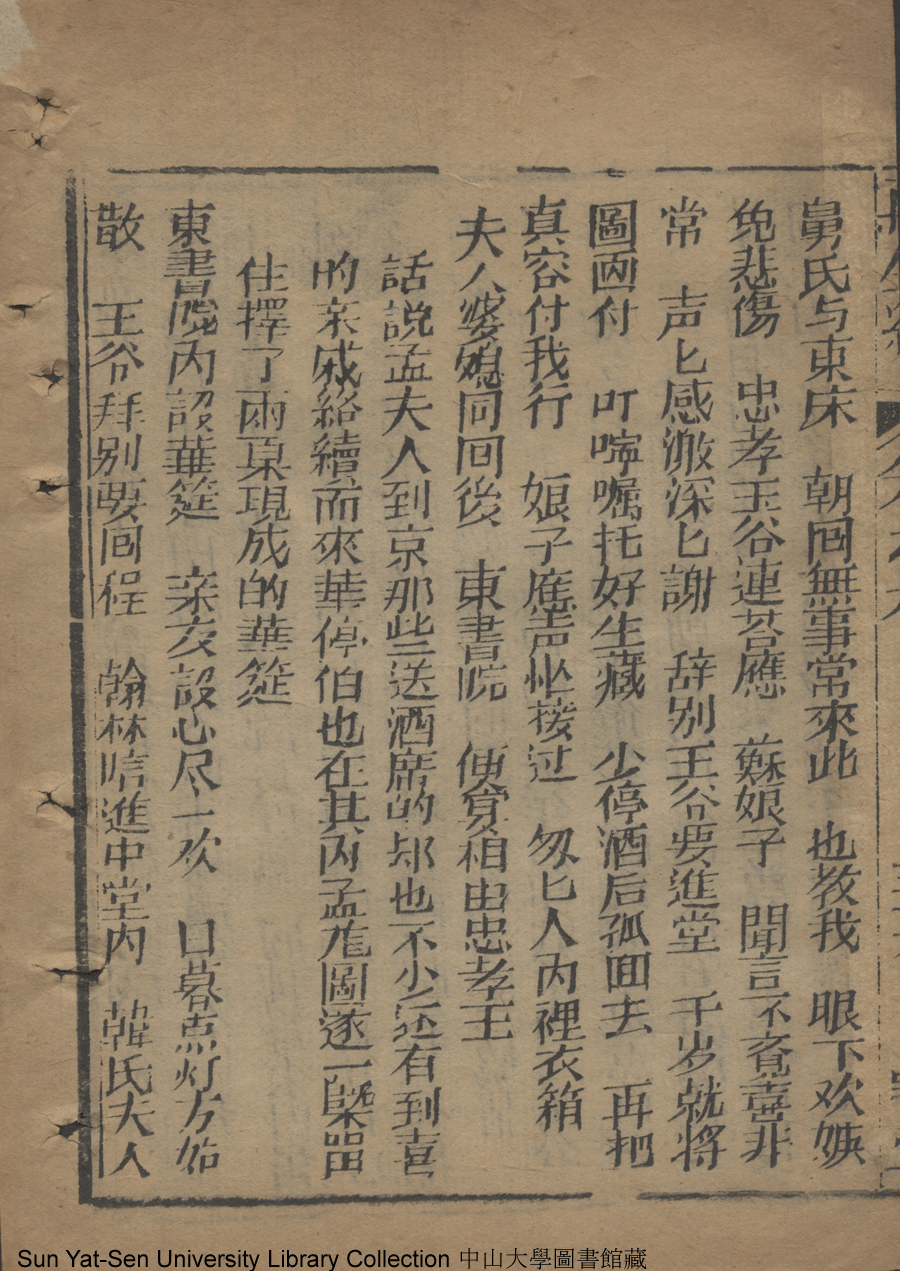 舅氏与東床　朝回無事常來此　也教我　眼下欢娛
免悲傷　忠孝王爷連荅應　蘇娘子　聞言不覺喜非
常　声匕感激深匕謝　辞别王爷要進堂　千岁就将
圖画付　叮嚀嘱托好生藏　少停酒后孤回去　再把
真容付我行　娘子應声忙接过　匆匕人内裡衣箱
夫人婆媳同回後　東書院　便穿相由忠孝王
話説孟夫人到京那些送酒席的却也不少还有到喜
的亲戚絡續而來華停伯也在其内孟龙圖遂一槩留
住擇了兩桌現成的華筵
東書院内設華筵　亲友設心尽一欢　日暮点灯方始
散　王爷拜别要回程　翰林陪進中堂内　韓氏夫人
Sun Yat-Sen University Library Collection 中山大學圖書館藏